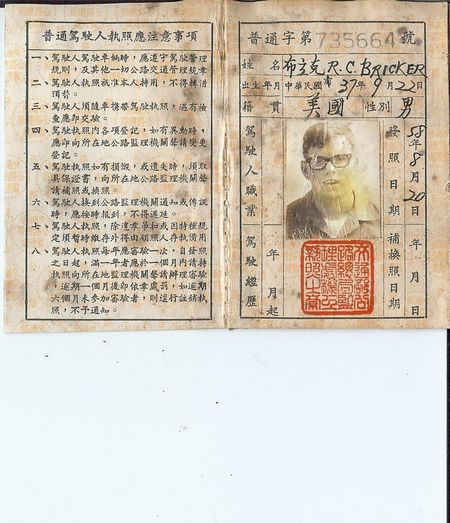 普通駕駛人執照應注意事項
一、駕駛人駕駛車輛時，應遵守駕駛管理
規則，及其他一切公路交通管理規章
二、駕駛執照祇准本人持用，不得轉借
頂替。
三、駕駛人須隨車攜帶駕駛執照，遇有檢
查應即交驗。
四、駕駛執照內各項登記，如有異動時，
應即向所在地公路監理機關聲請變更
登記。
五、駕駛執照如有損燬，或遺失時，須取
具保證書，向所在地公路監理機關聲
請補照或換照。
六、駕駛人接到公路監理機關通知或傳訊
時，應按時報到，不得遲延。
七、駕駛執照，除違章吊扣或因特種規
定須暫時繳存外，得由領照人自存執備用
八、駕駛執照每年審驗一次，自
之日起，滿一年
執照向所在地
，逾期
六個月未參加審驗
照，不予通知。
普通字第735664號
姓名 布立克 R.C. BRICKER
出生年月中華民國前 37年9月22日
籍貫 美國 性別 男
駕駛人職業
駕駛經歷
年月起
發照日期
58年8月20日
補換照日期
年月日